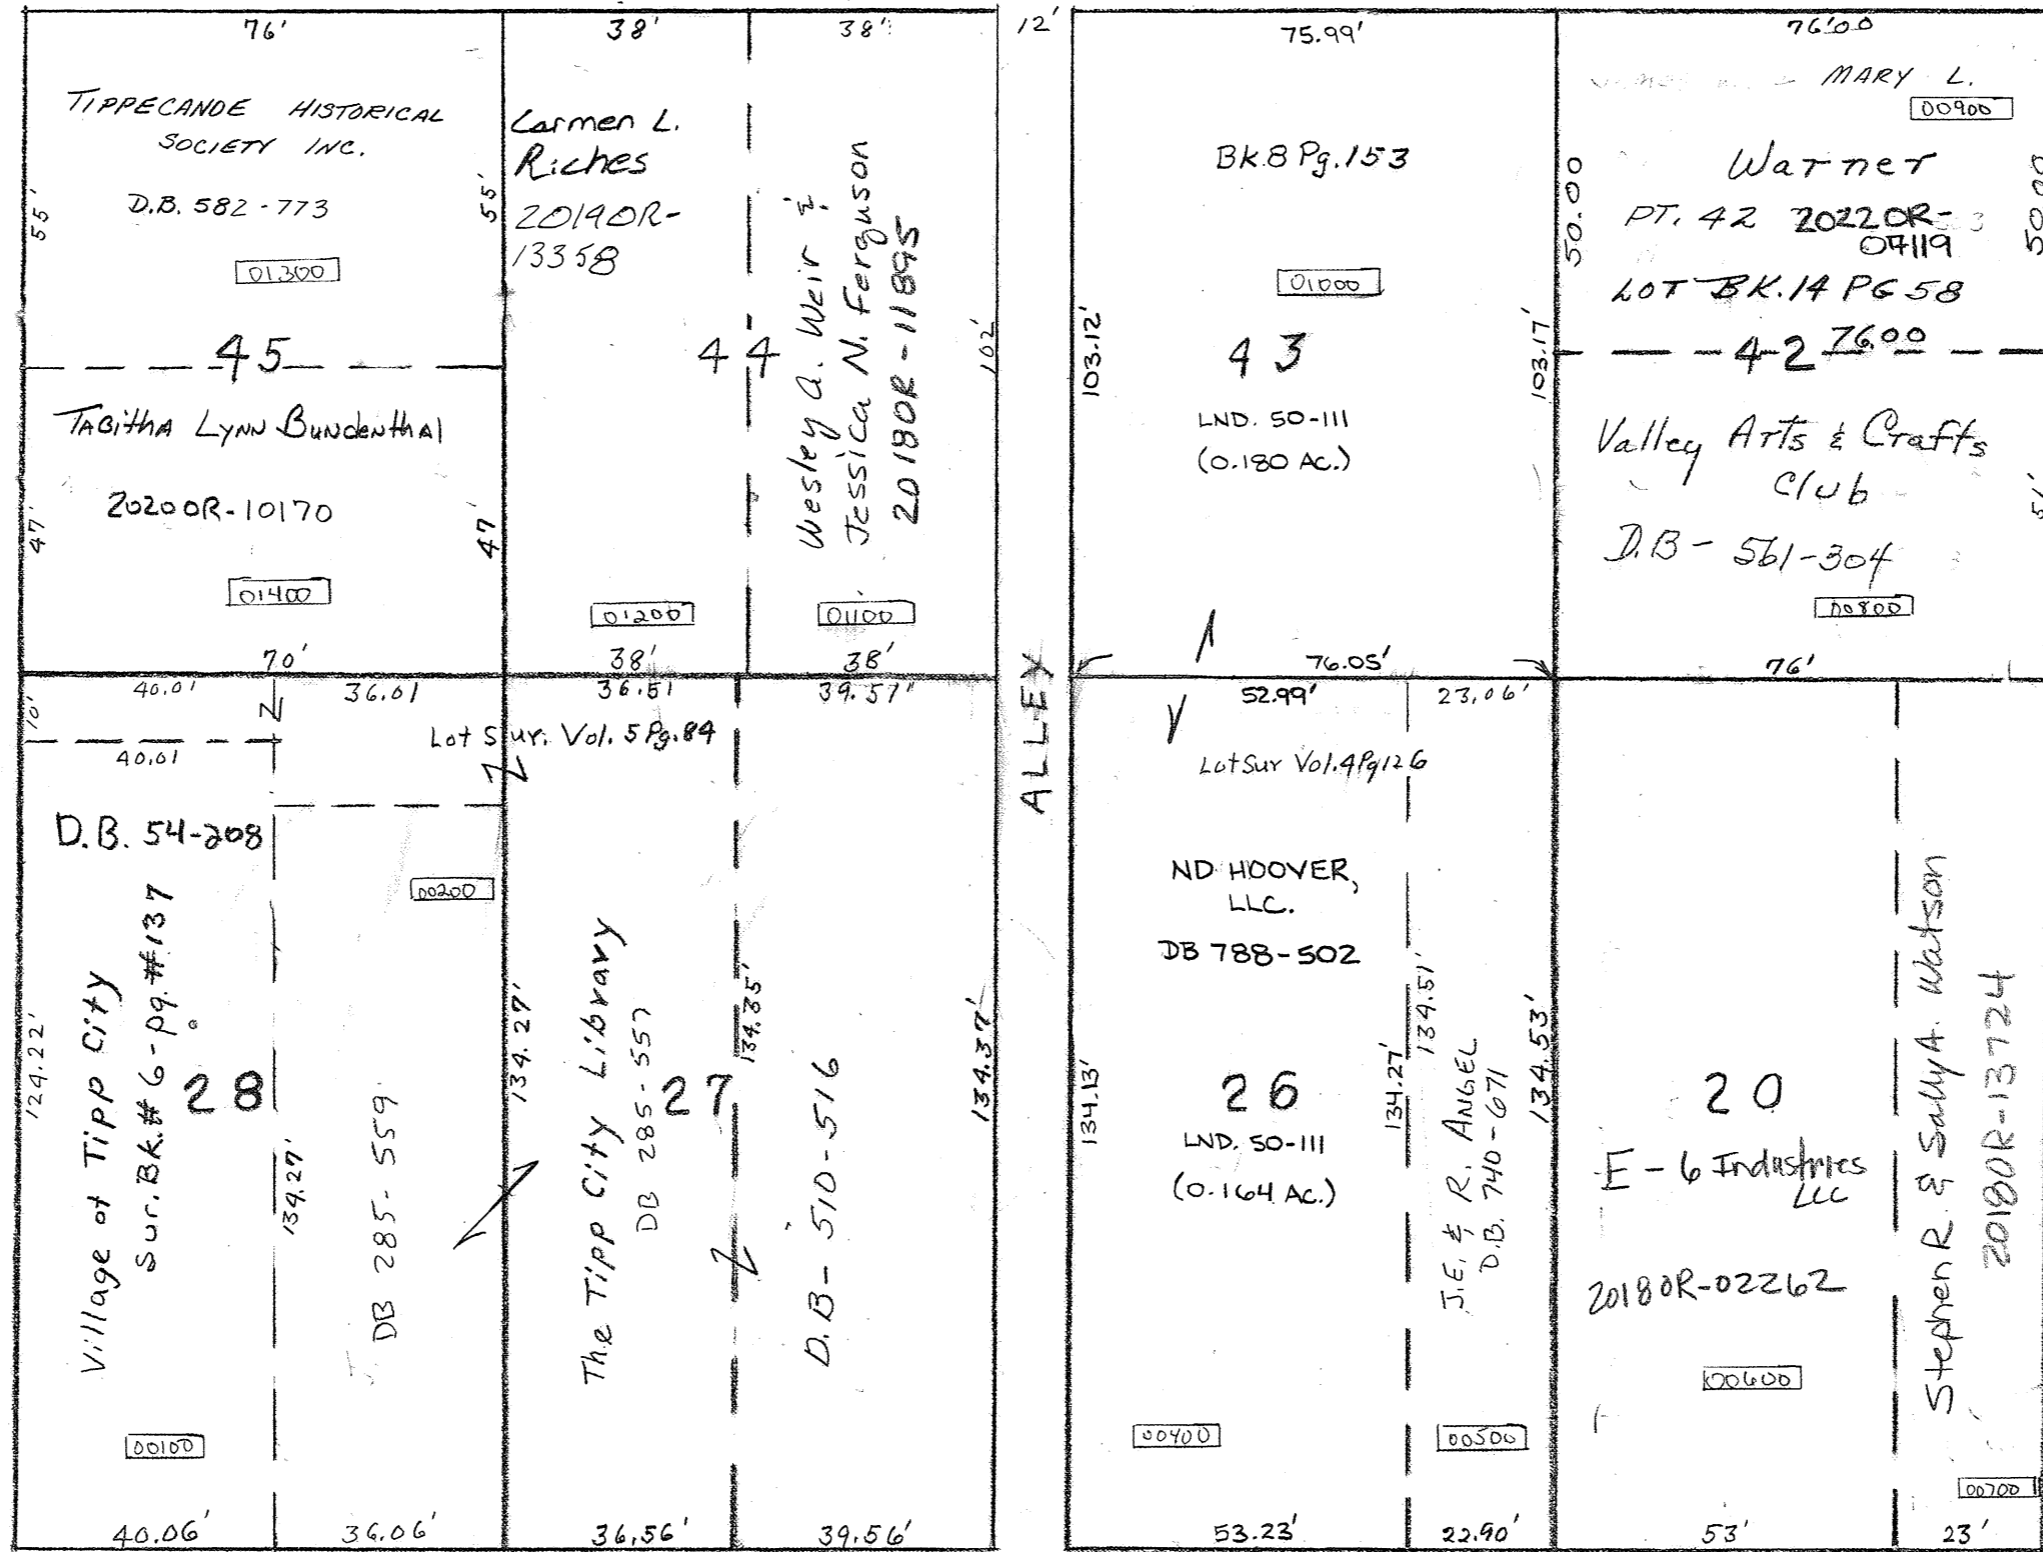 76'
38'
38'
12'
75.99'
76'00
TIPPECANOE HISTORICAL
SOCIETY INC.
D.B. 582-773
01300
55'
55'
45
TABITHA LYNN BUNDENTHAL
20200R-10170
47'
47'
01400
70'
Carmen L.
Riches
20190R-
13358
44
01200
38'
Wesley A. Weir &
Jessica N. Ferguson
20180R-11895
102'
01100
38'
Bk.8 Pg.153
01000
103.12'
103.17'
43
LND. 50-111
(0.180 AC.)
76.05'
MARY L.
00900
Warner
50.00
50.00
PT. 42 20220R-
07119
LOT BK.14 PG 58
42 76.00
Valley Arts & Crafts
Club
D.B - 561-304
51'
00800
76'
ALLEY
40.01
36.01
10'
40.01
Lot Sur. Vol. 5 Pg.84
D.B. 54-208
Village of Tipp City
Sur.Bk.# 6-pg.#137
28
124.22'
134.27'
00100
40.06'
00200
DB 285-559
36.06'
36.51
39.57'
134.27'
The Tipp City Library
DB 285-557
27
134.35'
D.B - 510-516
134.37'
36.56'
39.56'
52.99'
23.06'
Lot Sur Vol.4Pg126
ND HOOVER,
LLC.
DB 788-502
134.13'
26
LND. 50-111
(0.164 AC.)
134.27'
134.51'
J.E. & R. ANGEL
D.B. 740-671
134.53'
00400
00500
53.23'
22.90'
20
E-6 Industries
LLC
20180R-02262
00600
53'
Stephen R. & Sally A. Watson
20180R-13724
00700
23'